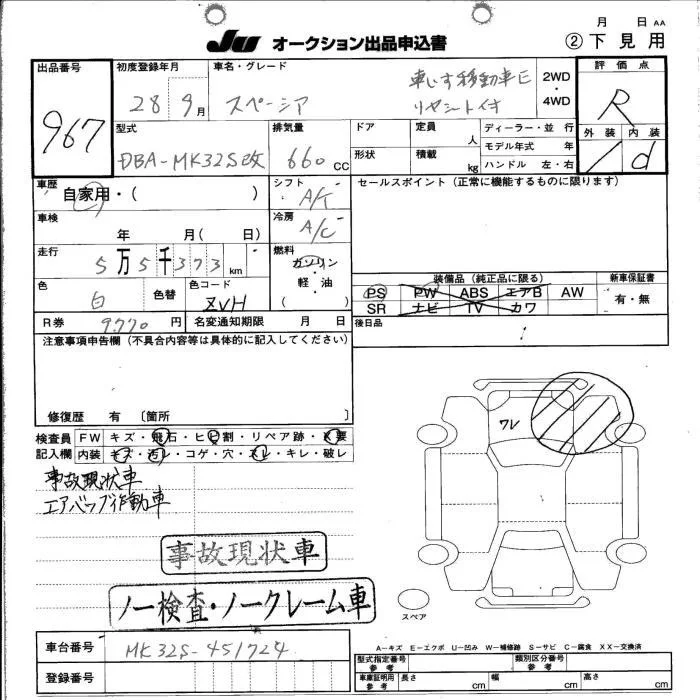 月 日 AA
JU オークション出品申込書 ②下見用
出品番号 967
初度登録年月 28年9月
車名・グレード スペーシア
車いす移動車E
リヤシート付
2WD・4WD
評価点 R
外装 内装 d
型式 DBA-MK32S改
排気量 660 CC
ドア
形状
定員 人
積載 kg
ディーラー・並行
モデル年式 年
ハンドル 左・右
車歴 自家用・( )
シフト A/T
セールスポイント (正常に機能するものに限ります)
車検 年 月( 日)
冷房 A/C
走行 5万5千373 km
燃料 ガソリン・軽油 ( )
色 白 色替 色コード ZVH
装備品 (純正品に限る) 新車保証書
PS PW ABS エアB AW 有・無
SR ナビ TV カワ
R券 9770円 名変通知期限 月 日
後日品
注意事項申告欄 (不具合内容等は具体的に記入してください)
修復歴 有 [箇所 ]
検査員記入欄
FW キズ・飛石・ヒビ割・リペア跡・X要
内装 キズ・汚レ・コゲ・穴・スレ・キレ・破レ
事故現状車
エアバッグ作動車
事故現状車
ノー検査・ノークレーム車
ワレ
スペア
車台番号 MK32S-451724
登録番号
A-キズ E-エクボ U-凹み W-補修跡 S-サビ C-腐食 XX-交換済
型式指定番号 参考 類別区分番号 参考
車庫証明用 参考 長さ cm 幅 cm 高さ cm